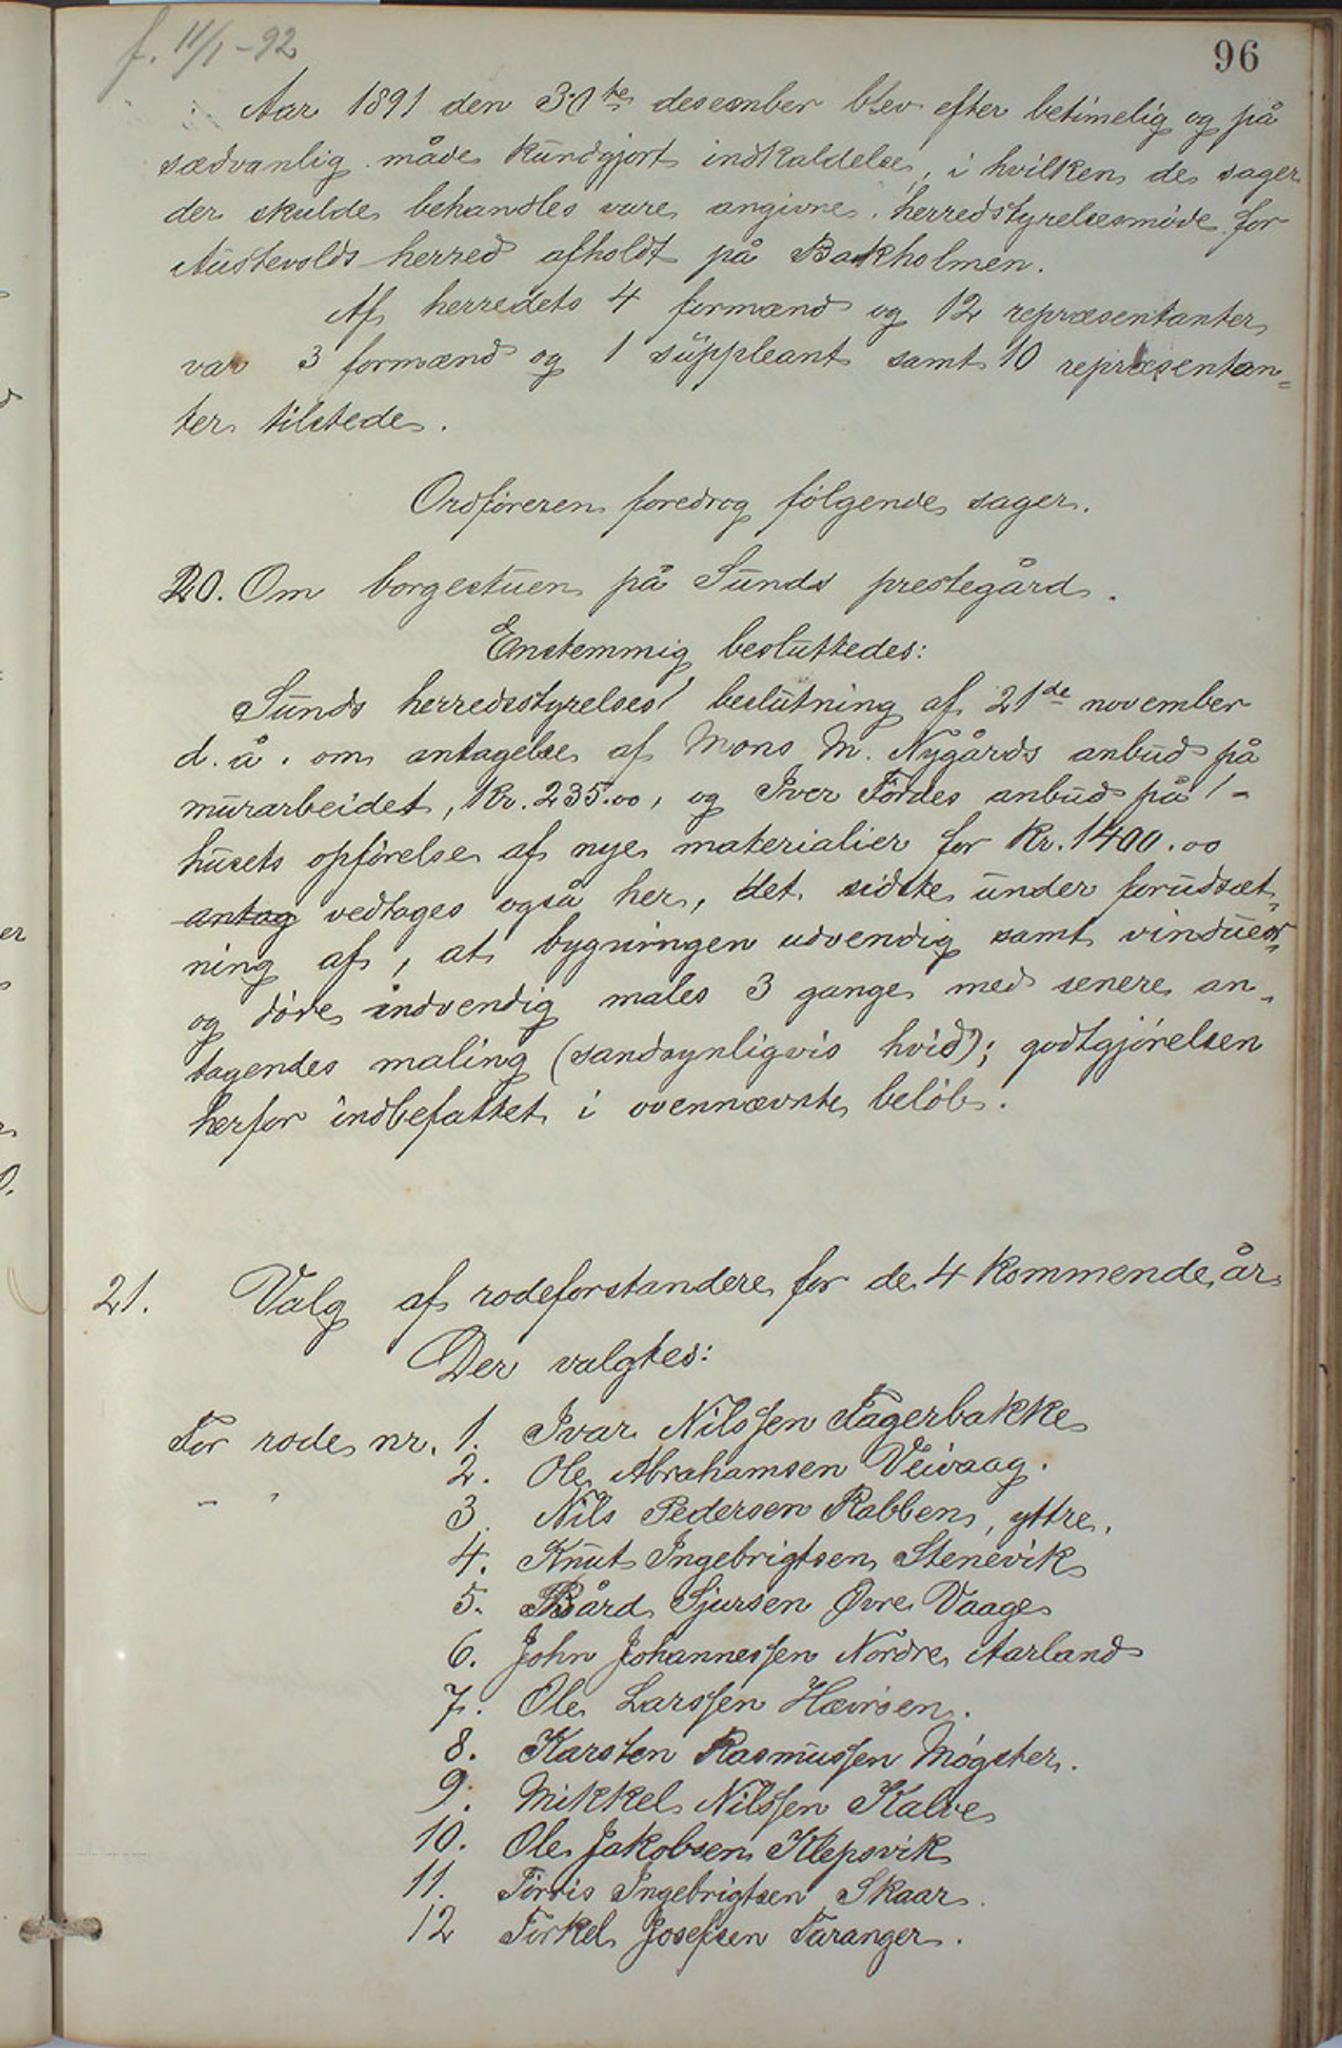 f. 11/1-92
96
Aar 1891 den 30te desember blev efter betimelig og på
sædvanlig måde kundgjort indkaldelse, i hvilken de sager
der skulde behandles vare angivne, herredstyrelsesmøde for
Austevolds herred afholdt på Bakholmen.
Af herredets 4 formænd og 12 repræsentanter
var 3 formænd og 1 suppleant samt 10 repræsentan=
ter tilstede.
Ordføreren foredrog følgende sager.
20. Om borgestuen på Sunds prestegård.
Enstemmig besluttedes:
Sunds herredsstyrelses beslutning af 21de november
d. å. om antagelse af Mons M. Nygårds anbud på
murarbeidet, Kr. 235.00, og Iver Fördes anbud på
husets opførelse af nye materialier for Kr. 1400.00
antag vedtages også her, det sidste under forudsæt=
ning af, at bygningen udvendig samt vinduer
og døre indvendig males 3 gange med senere an=
tagendes maling (sandsynligvis hvid); godtgjørelsen
herfor indbefattet i ovennævnte beløb.
21. Valg af rodeforstandere for de 4 kommende år
Der valgtes:
For rode nr. 1. Ivar Nilssen Fagerbakke
2. Ole Abrahamsen Veivaag.
- " 3. Nils Pedersen Rabben, yttre.
4. Knut Ingebrigtsen Stenevik
5. Bård Sjursen Øvre Vaage
6. John Johannessen Nordre Aarland
7. Ole Larssen Hævrøen.
8. Karsten Rasmussen Møgster.
9. Mikkel Nilssen Kalve
10. Ole Jakobsen Klepsvik
11. Torris Ingebrigtsen Skaar.
12 Torkel Josefsen Taranger.